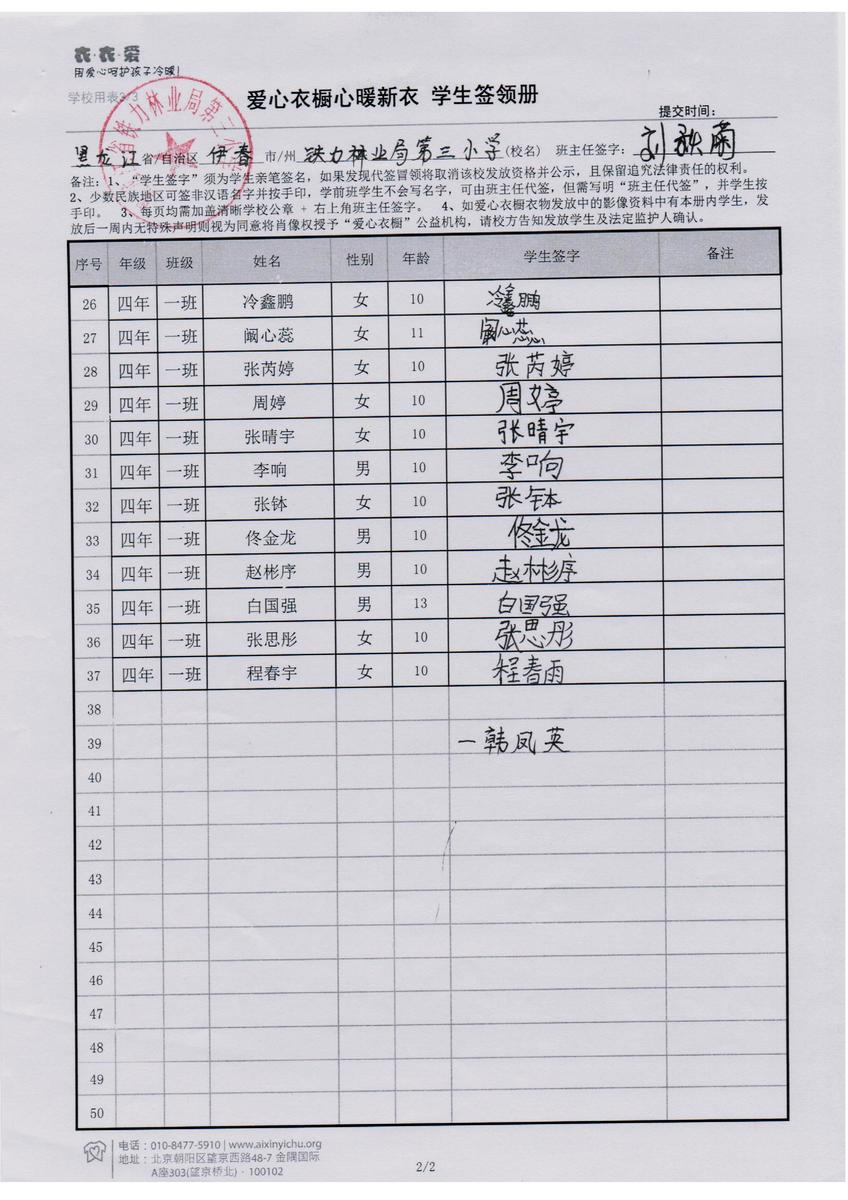 衣·衣·爱
用爱心呵护孩子冷暖!
学校用表3/3
爱心衣橱心暖新衣 学生签领册
提交时间:
黑龙江省/自治区 伊春 市/州 铁力林业局第三小学(校名) 班主任签字: 刘秋菊
备注:1、“学生签字”须为学生亲笔签名,如果发现代签冒领将取消该校发放资格并公示,且保留追究法律责任的权利。
2、少数民族地区可签非汉语名字并按手印,学前班学生不会写名字,可由班主任代签,但需写明“班主任代签”,并学生按
手印。 3、每页均需加盖清晰学校公章 + 右上角班主任签字。 4、如爱心衣橱衣物发放中的影像资料中有本册内学生,发
放后一周内无特殊声明则视为同意将肖像权授予“爱心衣橱”公益机构,请校方告知发放学生及法定监护人确认。
序号 年级 班级 姓名 性别 年龄 学生签字 备注
26 四年 一班 冷鑫鹏 女 10 冷鑫鹏
27 四年 一班 阚心蕊 女 11 阚心蕊
28 四年 一班 张芮婷 女 10 张芮婷
29 四年 一班 周婷 女 10 周婷
30 四年 一班 张晴宇 女 10 张晴宇
31 四年 一班 李响 男 10 李响
32 四年 一班 张钵 女 10 张钵
33 四年 一班 佟金龙 男 10 佟金龙
34 四年 一班 赵彬序 男 10 赵彬序
35 四年 一班 白国强 男 13 白国强
36 四年 一班 张思彤 女 10 张思彤
37 四年 一班 程春宇 女 10 程春雨
38
39 一韩凤英
40
41
42
43
44
45
46
47
48
49
50
电话:010-8477-5910 | www.aixinyichu.org
地址:北京朝阳区望京西路48-7 金隅国际
A座303(望京桥北)·100102
2/2